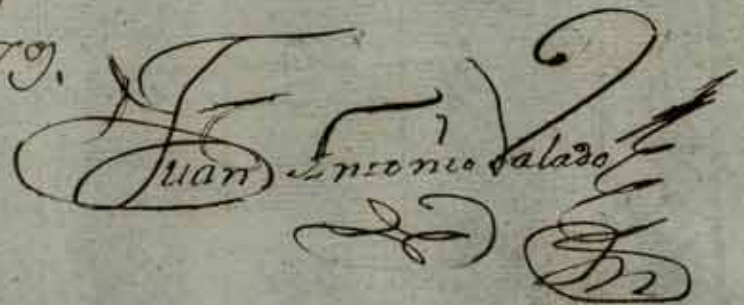 79.
Juan Antonio Salado